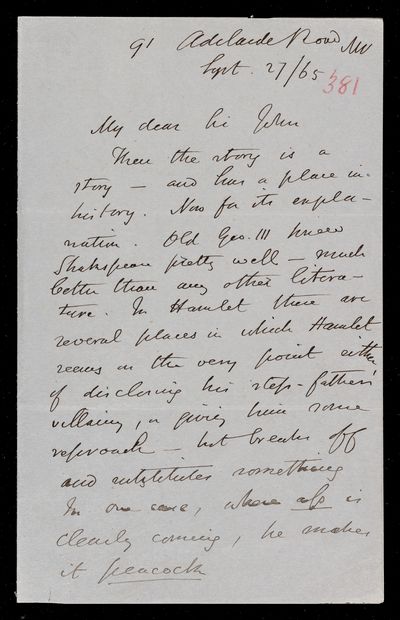 91 Adelaide Road NW
Sept. 27/65
381
My dear Sir John
Then the story is a
story — and has a place in
history. Now for its expla-
nation. Old Geo. III knew
Shakspeare pretty well — much
better than any other litera-
ture. In Hamlet there are
several places in which Hamlet
seems on the very point either
of disclosing his step-father's
villainy, or giving him some
reproach — but breaks off
and substitutes something
In one case, where ass is
clearly coming, he makes
it peacock